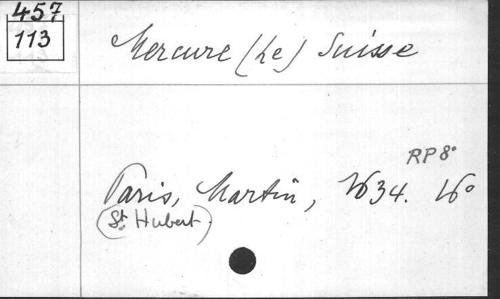 457
113
Mercure (Le) Suisse
RP 8°
Paris, Martin, 1634. 16°
(St. Hubert)